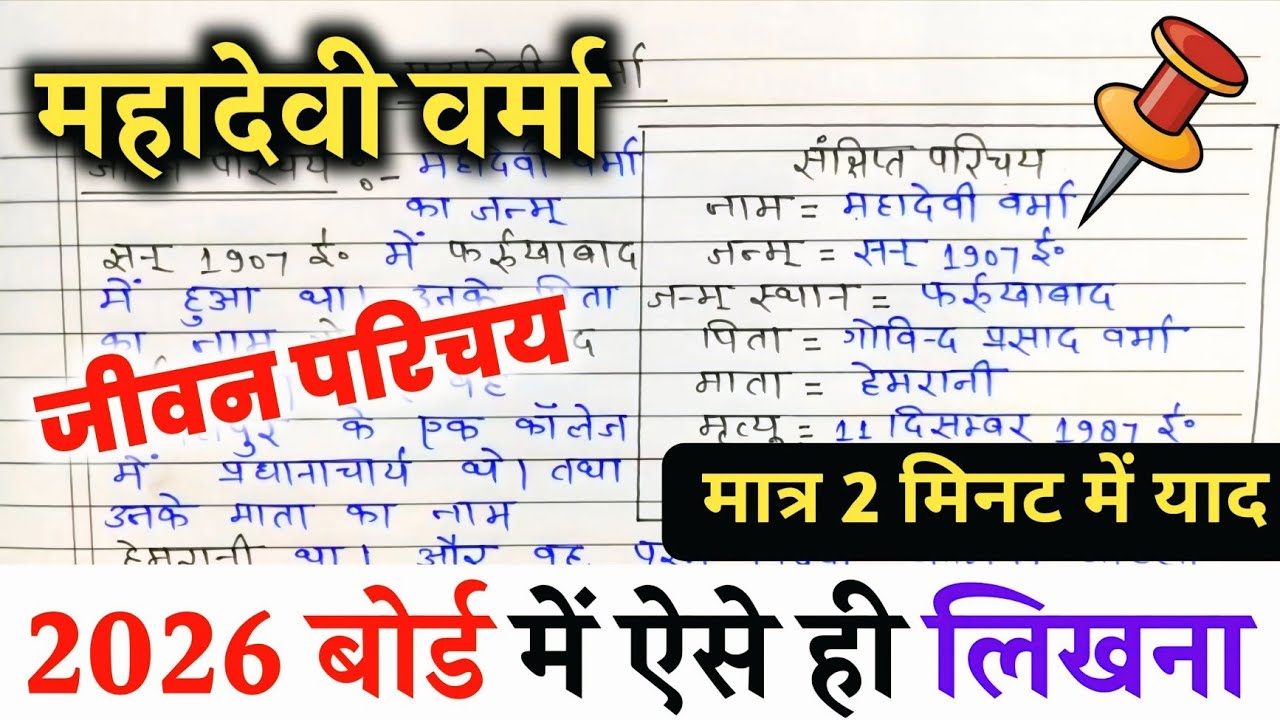 महादेवी वर्मा
परिचय :- महादेवी वर्मा
का जन्म्
सन् 1907 ई० में फर्रुखाबाद
में हुआ था। उनके पिता
का नाम
के एक कॉलेज
में प्रधानाचार्य थे। तथा
उनके माता का नाम
हेमरानी था। और वह
संक्षिप्त परिचय
नाम = महादेवी वर्मा
जन्म् = सन् 1907 ई०
जन्म् स्थान = फर्रुखाबाद
पिता = गोविन्द प्रसाद वर्मा
माता = हेमरानी
मृत्यू = 11 दिसम्बर 1987 ई०
जीवन परिचय
मात्र 2 मिनट में याद
2026 बोर्ड में ऐसे ही लिखना